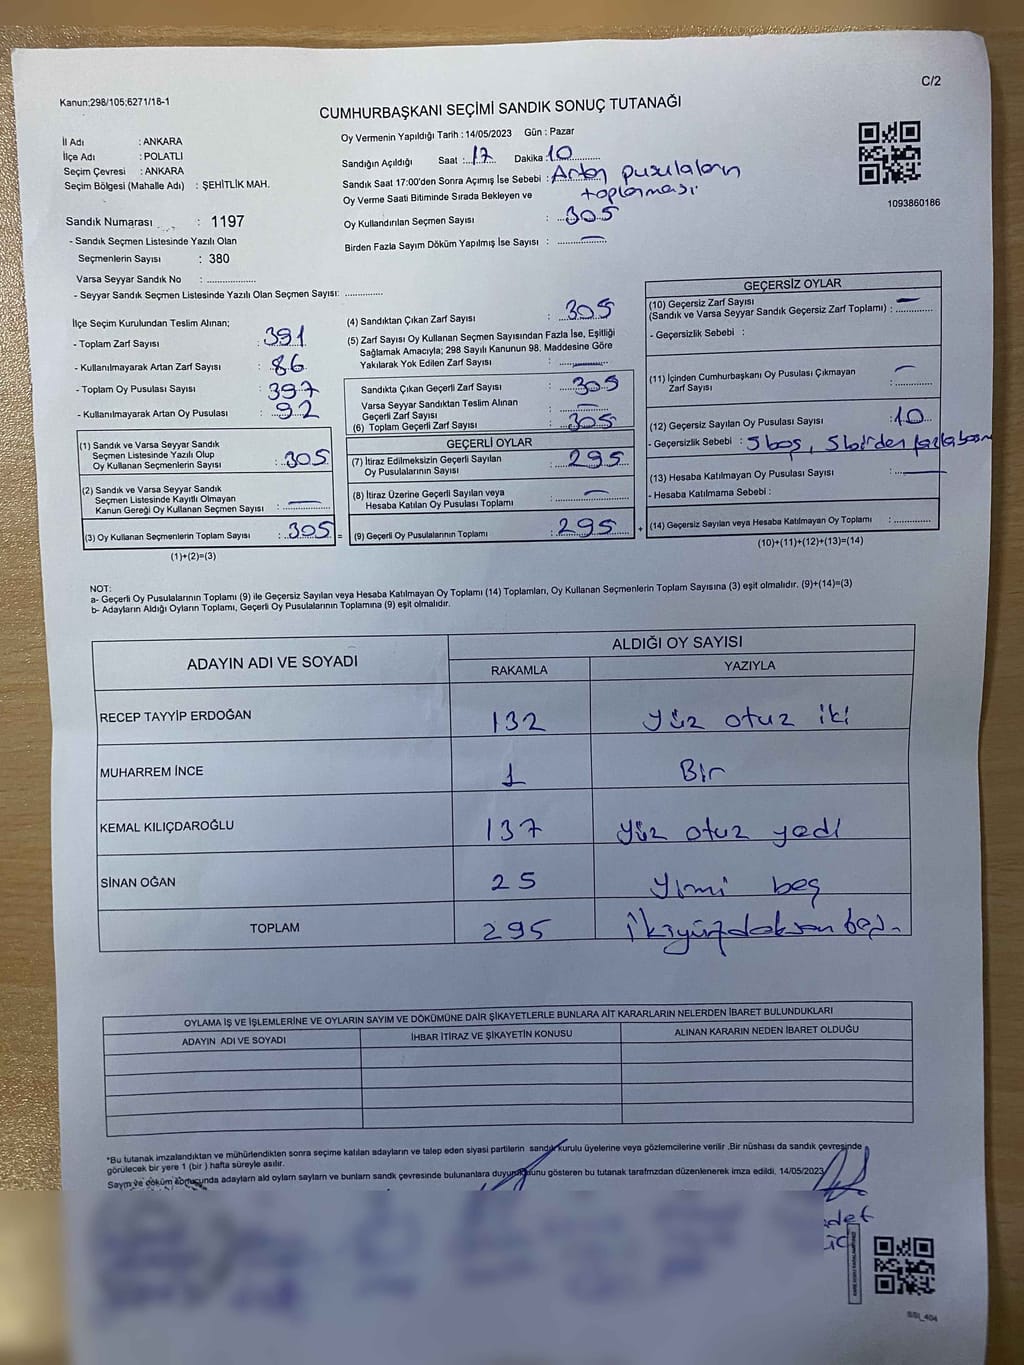 C/2
Kanun:298/105;6271/18-1
CUMHURBAŞKANI SEÇİMİ SANDIK SONUÇ TUTANAĞI
İl Adı : ANKARA
İlçe Adı : POLATLI
Seçim Çevresi : ANKARA
Seçim Bölgesi (Mahalle Adı) : ŞEHİTLİK MAH.
Oy Vermenin Yapıldığı Tarih : 14/05/2023 Gün : Pazar
Sandığın Açıldığı Saat : 17 Dakika : 10
Sandık Saat 17:00'den Sonra Açımış İse Sebebi : Artan pusulaların
Oy Verme Saati Bitiminde Sırada Bekleyen ve toplanması
Oy Kullandırılan Seçmen Sayısı : 305
Birden Fazla Sayım Döküm Yapılmış İse Sayısı : —
1093860186
Sandık Numarası : 1197
- Sandık Seçmen Listesinde Yazılı Olan
Seçmenlerin Sayısı : 380
Varsa Seyyar Sandık No : ..................
- Seyyar Sandık Seçmen Listesinde Yazılı Olan Seçmen Sayısı: ..............
İlçe Seçim Kurulundan Teslim Alınan;
- Toplam Zarf Sayısı : 391
- Kullanılmayarak Artan Zarf Sayısı : 86
- Toplam Oy Pusulası Sayısı : 397
- Kullanılmayarak Artan Oy Pusulası : 92
(1) Sandık ve Varsa Seyyar Sandık
Seçmen Listesinde Yazılı Olup
Oy Kullanan Seçmenlerin Sayısı : 305
(2) Sandık ve Varsa Seyyar Sandık
Seçmen Listesinde Kayıtlı Olmayan
Kanun Gereği Oy Kullanan Seçmen Sayısı : —
(3) Oy Kullanan Seçmenlerin Toplam Sayısı : 305 =
(1)+(2)=(3)
(4) Sandıktan Çıkan Zarf Sayısı : 305
(5) Zarf Sayısı Oy Kullanan Seçmen Sayısından Fazla İse, Eşitliği
Sağlamak Amacıyla; 298 Sayılı Kanunun 98. Maddesine Göre
Yakılarak Yok Edilen Zarf Sayısı : —
Sandıkta Çıkan Geçerli Zarf Sayısı : 305
Varsa Seyyar Sandıktan Teslim Alınan
Geçerli Zarf Sayısı : —
(6) Toplam Geçerli Zarf Sayısı : 305
GEÇERLİ OYLAR
(7) İtiraz Edilmeksizin Geçerli Sayılan
Oy Pusulalarının Sayısı : 295
(8) İtiraz Üzerine Geçerli Sayılan veya
Hesaba Katılan Oy Pusulası Toplamı : —
(9) Geçerli Oy Pusulalarının Toplamı : 295 +
GEÇERSİZ OYLAR
(10) Geçersiz Zarf Sayısı
(Sandık ve Varsa Seyyar Sandık Geçersiz Zarf Toplamı) : —
- Geçersizlik Sebebi :
(11) İçinden Cumhurbaşkanı Oy Pusulası Çıkmayan
Zarf Sayısı : —
(12) Geçersiz Sayılan Oy Pusulası Sayısı : 10
- Geçersizlik Sebebi : 5 boş, 5 birden fazla basma
(13) Hesaba Katılmayan Oy Pusulası Sayısı : —
- Hesaba Katılmama Sebebi :
(14) Geçersiz Sayılan veya Hesaba Katılmayan Oy Toplamı : ..............
(10)+(11)+(12)+(13)=(14)
NOT:
a- Geçerli Oy Pusulalarının Toplamı (9) ile Geçersiz Sayılan veya Hesaba Katılmayan Oy Toplamı (14) Toplamları, Oy Kullanan Seçmenlerin Toplam Sayısına (3) eşit olmalıdır. (9)+(14)=(3)
b- Adayların Aldığı Oyların Toplamı, Geçerli Oy Pusulalarının Toplamına (9) eşit olmalıdır.
ADAYIN ADI VE SOYADI
ALDIĞI OY SAYISI
RAKAMLA YAZIYLA
RECEP TAYYİP ERDOĞAN 132 yüz otuz iki
MUHARREM İNCE 1 Bir
KEMAL KILIÇDAROĞLU 137 yüz otuz yedi
SİNAN OĞAN 25 yirmi beş
TOPLAM 295 ikiyüzdoksan beş.
OYLAMA İŞ VE İŞLEMLERİNE VE OYLARIN SAYIM VE DÖKÜMÜNE DAİR ŞİKAYETLERLE BUNLARA AİT KARARLARIN NELERDEN İBARET BULUNDUKLARI
ADAYIN ADI VE SOYADI İHBAR İTİRAZ VE ŞİKAYETİN KONUSU ALINAN KARARIN NEDEN İBARET OLDUĞU
*Bu tutanak imzalandıktan ve mühürlendikten sonra seçime katılan adayların ve talep eden siyasi partilerin sandık kurulu üyelerine veya gözlemcilerine verilir .Bir nüshası da sandık çevresinde
görülecek bir yere 1 (bir ) hafta süreyle asılır.
Sayım ve döküm sonucunda adayların ald oyların sayların ve bunların sandk çevresinde bulunanlara duyurulduğunu gösteren bu tutanak tarafmzdan düzenlenerek imza edildi. 14/05/2023
SSI_404